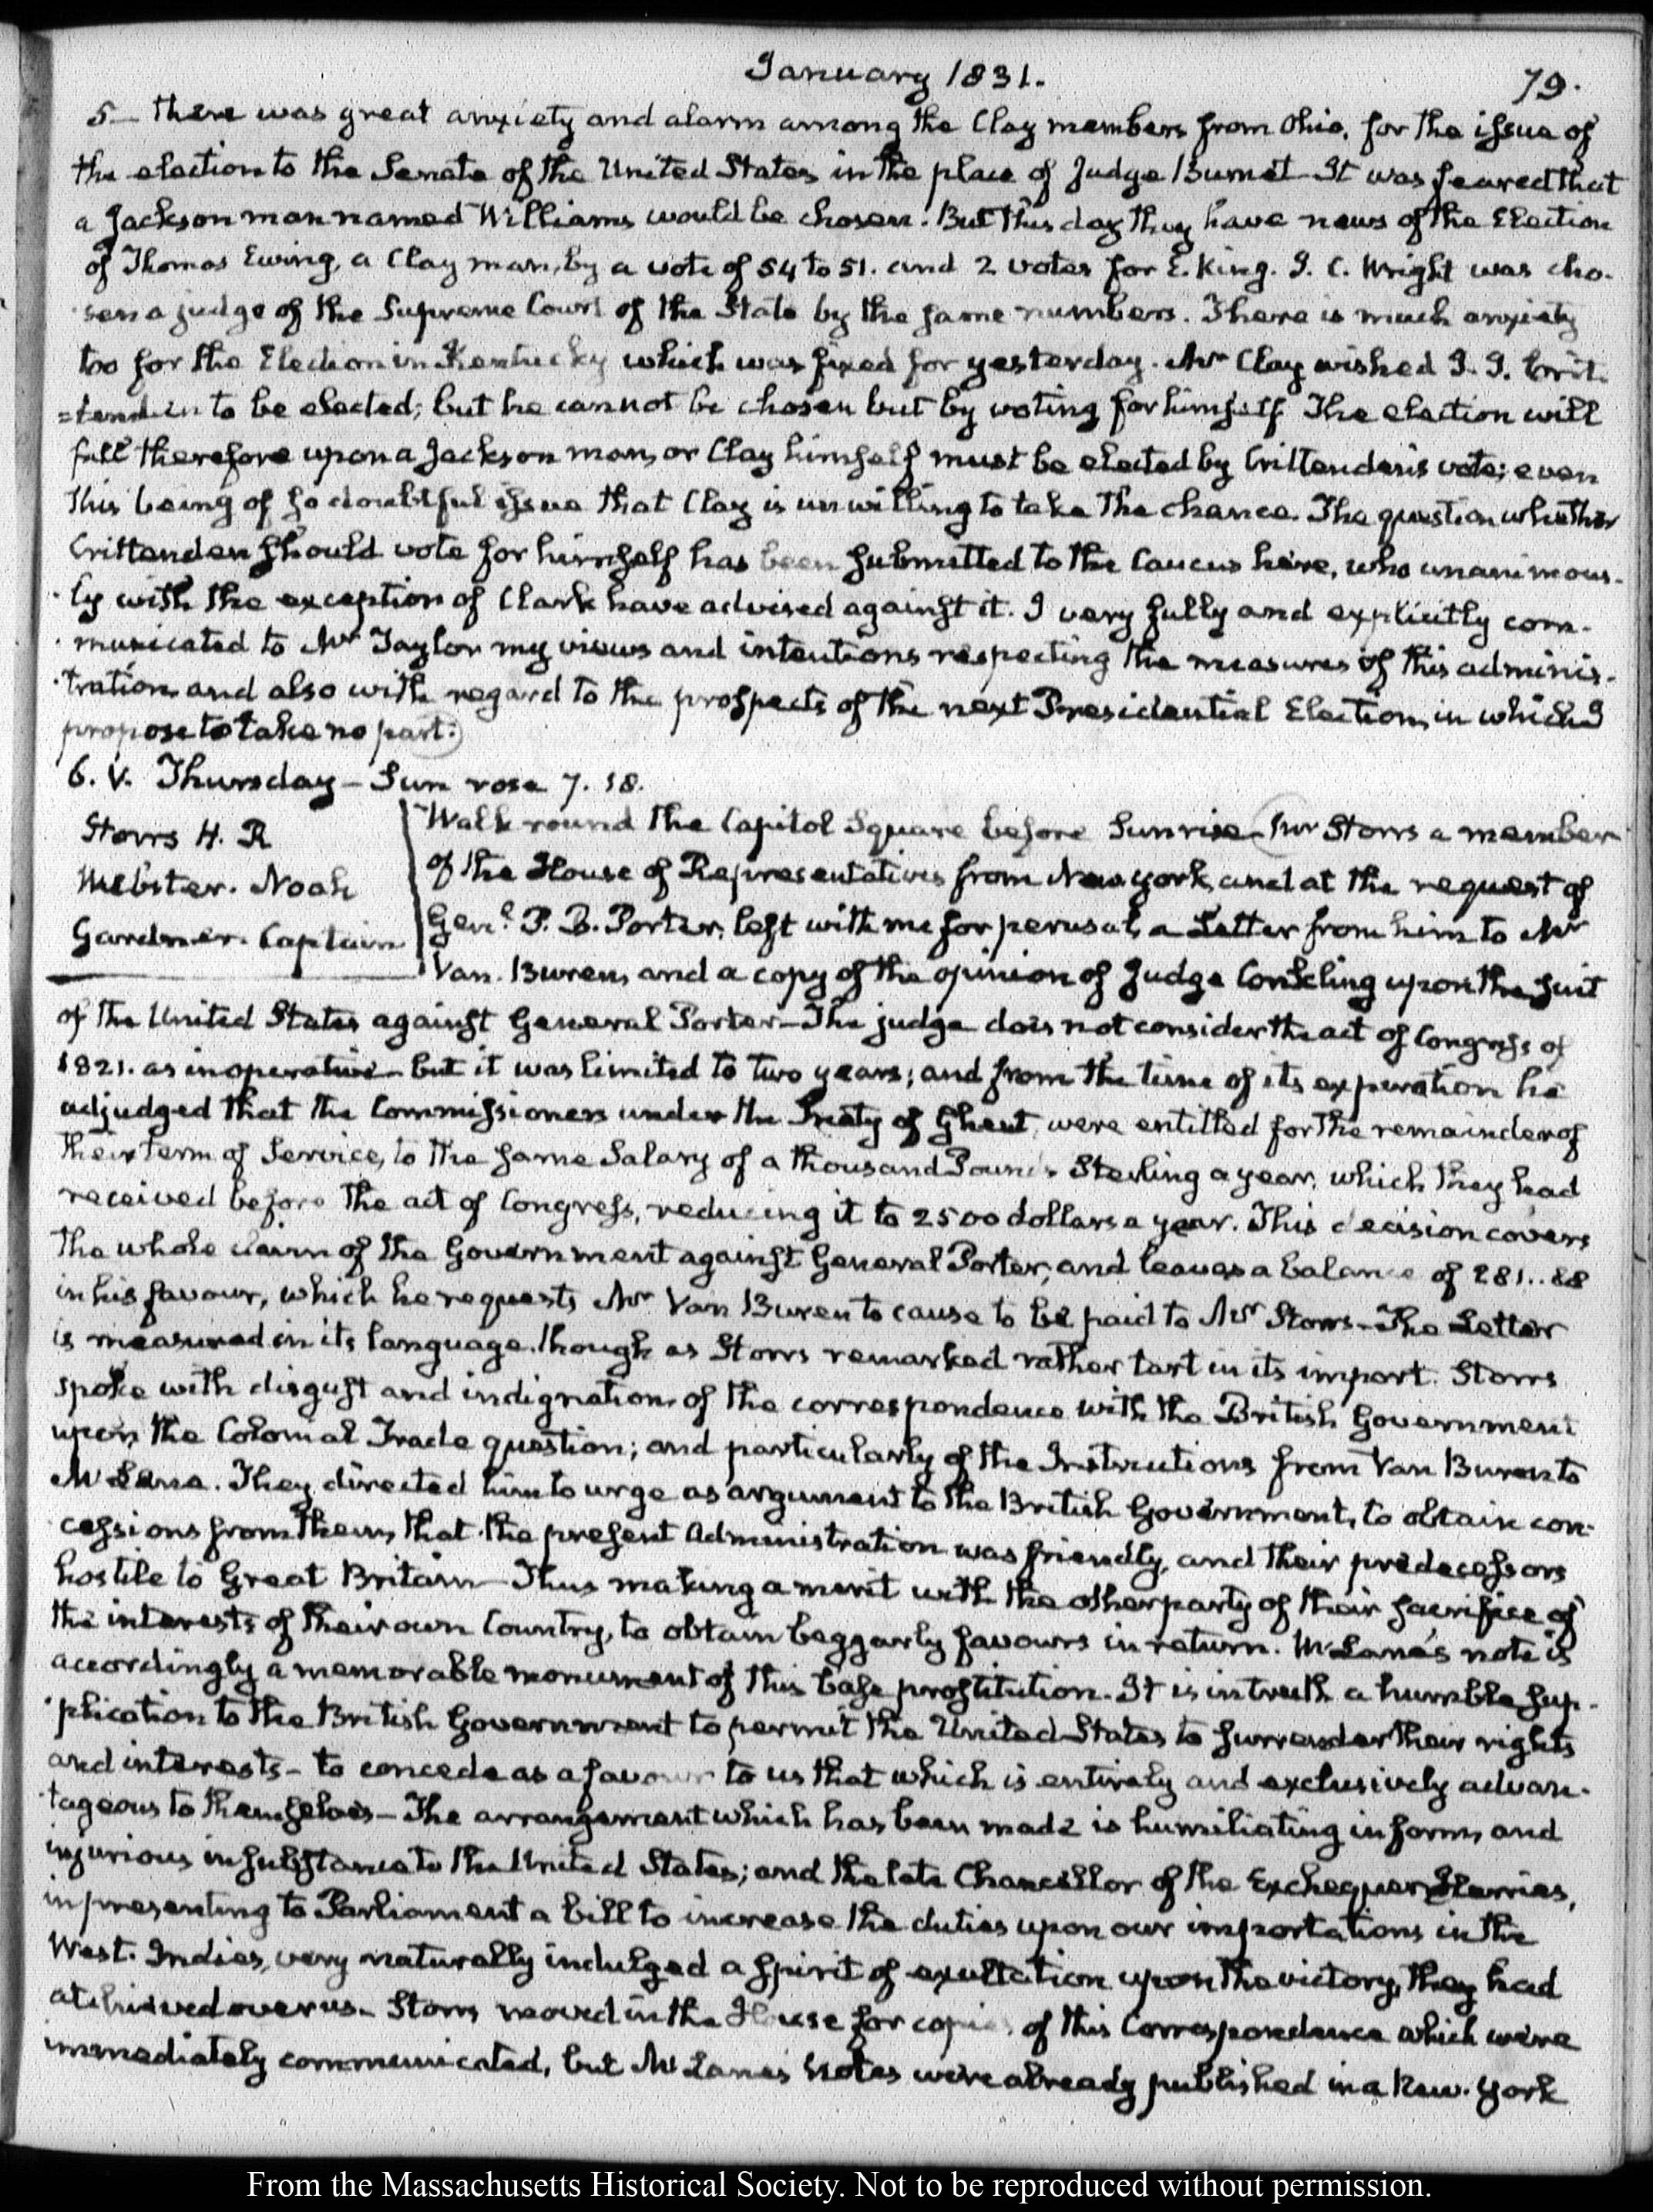 January 1831.
79.
5— there was great anxiety and alarm among the Clay members from Ohio, for the issue of
the election to the Senate of the United States in the place of Judge Burnet— It was feared that
a Jackson man named Williams would be chosen. But this day they have news of the Election
of Thomas Ewing, a Clay man, by a vote of 54 to 51. and 2 votes for E. King. J. C. Wright was cho-
sen a judge of the Supreme Court of the State by the same numbers. There is much anxiety
too for the Election in Kentucky which was fixed for yesterday. Mr Clay wished J. J. Crit-
=tenden to be elected; but he cannot be chosen but by voting for himself. The election will
fall therefore upon a Jackson man, or Clay himself must be elected by Crittenden's vote; even
this being of so doubtful issue that Clay is unwilling to take the chance. The question whether
Crittenden should vote for himself has been submitted to the Caucus here, who unanimous-
-ly with the exception of Clark have advised against it. I very fully and explicitly com-
-municated to Mr Taylor my views and intentions respecting the measures of this adminis-
-tration and also with regard to the prospects of the next Presidential Election, in which I
propose to take no part.
6. V. Thursday— Sun rose 7. 18.
Storrs H. R
Webster. Noah
Gardner. Captain
Walk round the Capitol Square before Sunrise— Mr Storrs a member
of the House of Representatives from New York, and at the request of
Genl. P. B. Porter, left with me for perusal, a Letter from him to Mr
Van Buren, and a copy of the opinion of Judge Conkling upon the suit
of the United States against General Porter— The judge does not consider the act of Congress of
1821. as inoperative— but it was limited to two years; and from the time of its expiration he
adjudged that the Commissioners under the Treaty of Ghent, were entitled for the remainder of
their term of Service, to the same Salary of a thousand Pounds Sterling a year, which they had
received before the act of Congress, reducing it to 2500 dollars a year. This decision covers
the whole claim of the Government against General Porter, and leaves a balance of 281..88
in his favour, which he requests Mr Van Buren to cause to be paid to Mr Storrs— The Letter
is measured in its language, though as Storrs remarked rather tart in its import. Storrs
spoke with disgust and indignation of the correspondence with the British Government
upon the Colonial Trade question; and particularly of the Instructions from Van Buren to
McLane. They directed him to urge as argument to the British Government, to obtain con-
cessions from them, that the present Administration was friendly, and their predecessors
hostile to Great Britain— Thus making a merit with the other party of their sacrifice of
the interests of their own Country, to obtain beggarly favours in return. McLane's note is
accordingly a memorable monument of this base prostitution. It is in truth a humble sup-
-plication to the British Government to permit the United States to surrender their rights
and interests— to concede as a favour to us that which is entirely and exclusively advan-
-tageous to themselves— The arrangement which has been made is humiliating in form, and
injurious in substance to the United States; and the late Chancellor of the Exchequer Herries,
in presenting to Parliament a bill to increase the duties upon our importations in the
West. Indies, very naturally indulged a spirit of exultation upon the victory, they had
atchieved over us— Storrs moved in the House for copies of this Correspondence which were
immediately communicated, but McLane's Notes were already published in a New. York
From the Massachusetts Historical Society. Not to be reproduced without permission.